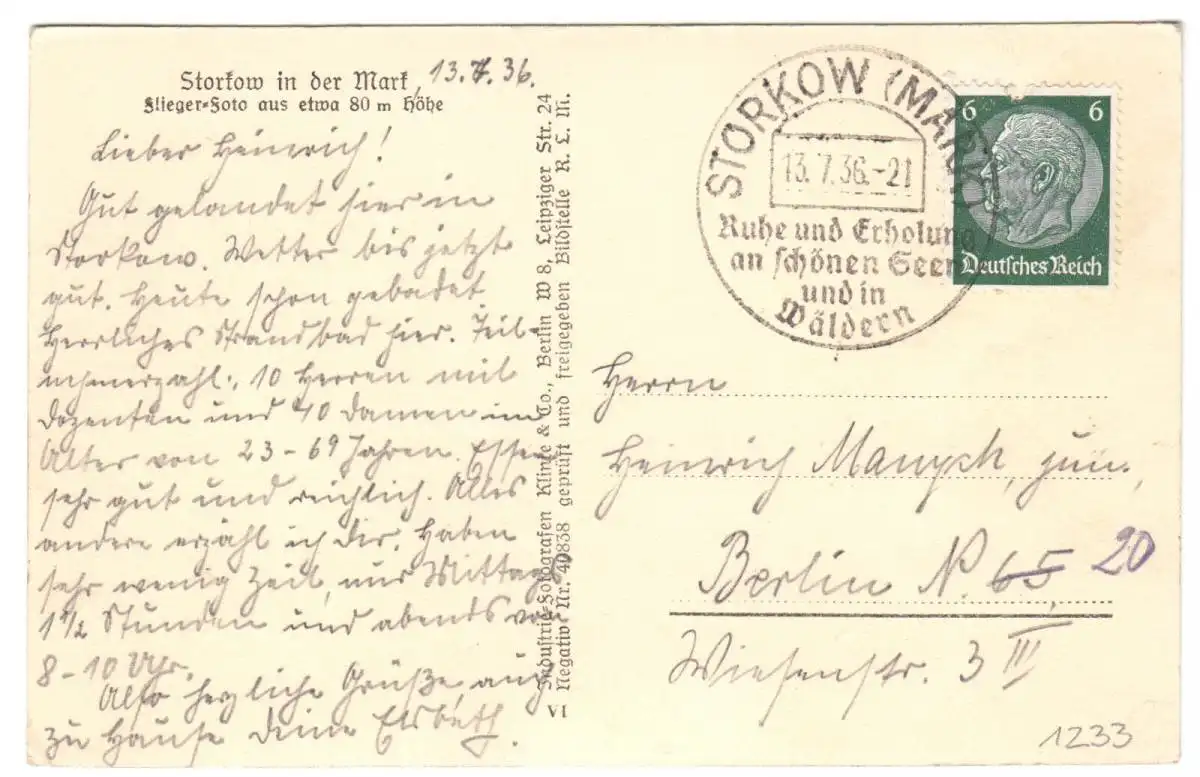 Storkow in der Mark, 13.7.36.
Flieger-Foto aus etwa 80 m Höhe
Lieber Heinrich!
Gut gelandet hier in
Storkow. Wetter bis jetzt
gut. Heute schon gebadet.
Herrliches Strandbad hier. Teil-
nehmerzahl: 10 Herren mit
Dozenten und 40 Damen im
Alter von 23-69 Jahren. Essen
sehr gut und reichlich. Alles
andere erzähl ich dir. Haben
sehr wenig Zeit, nur Mittags
1 1/2 Stunden und abends von
8-10 Uhr.
Also herzliche Grüße auch
zu Hause deine Elsbeth.
Industrie-Fotografen Klinke & Co., Berlin W 8, Leipziger Str. 24
Negativ Nr. 40838 geprüft und freigegeben Bildstelle R. L. M.
VI
STORKOW (MARK)
13.7.36.-21
Ruhe und Erholung
an schönen Seen
und in
Wäldern
6 6
Deutsches Reich
Herrn
Heinrich Manych, jun.,
Berlin N. 65, 20
Wiesenstr. 3 III
1233